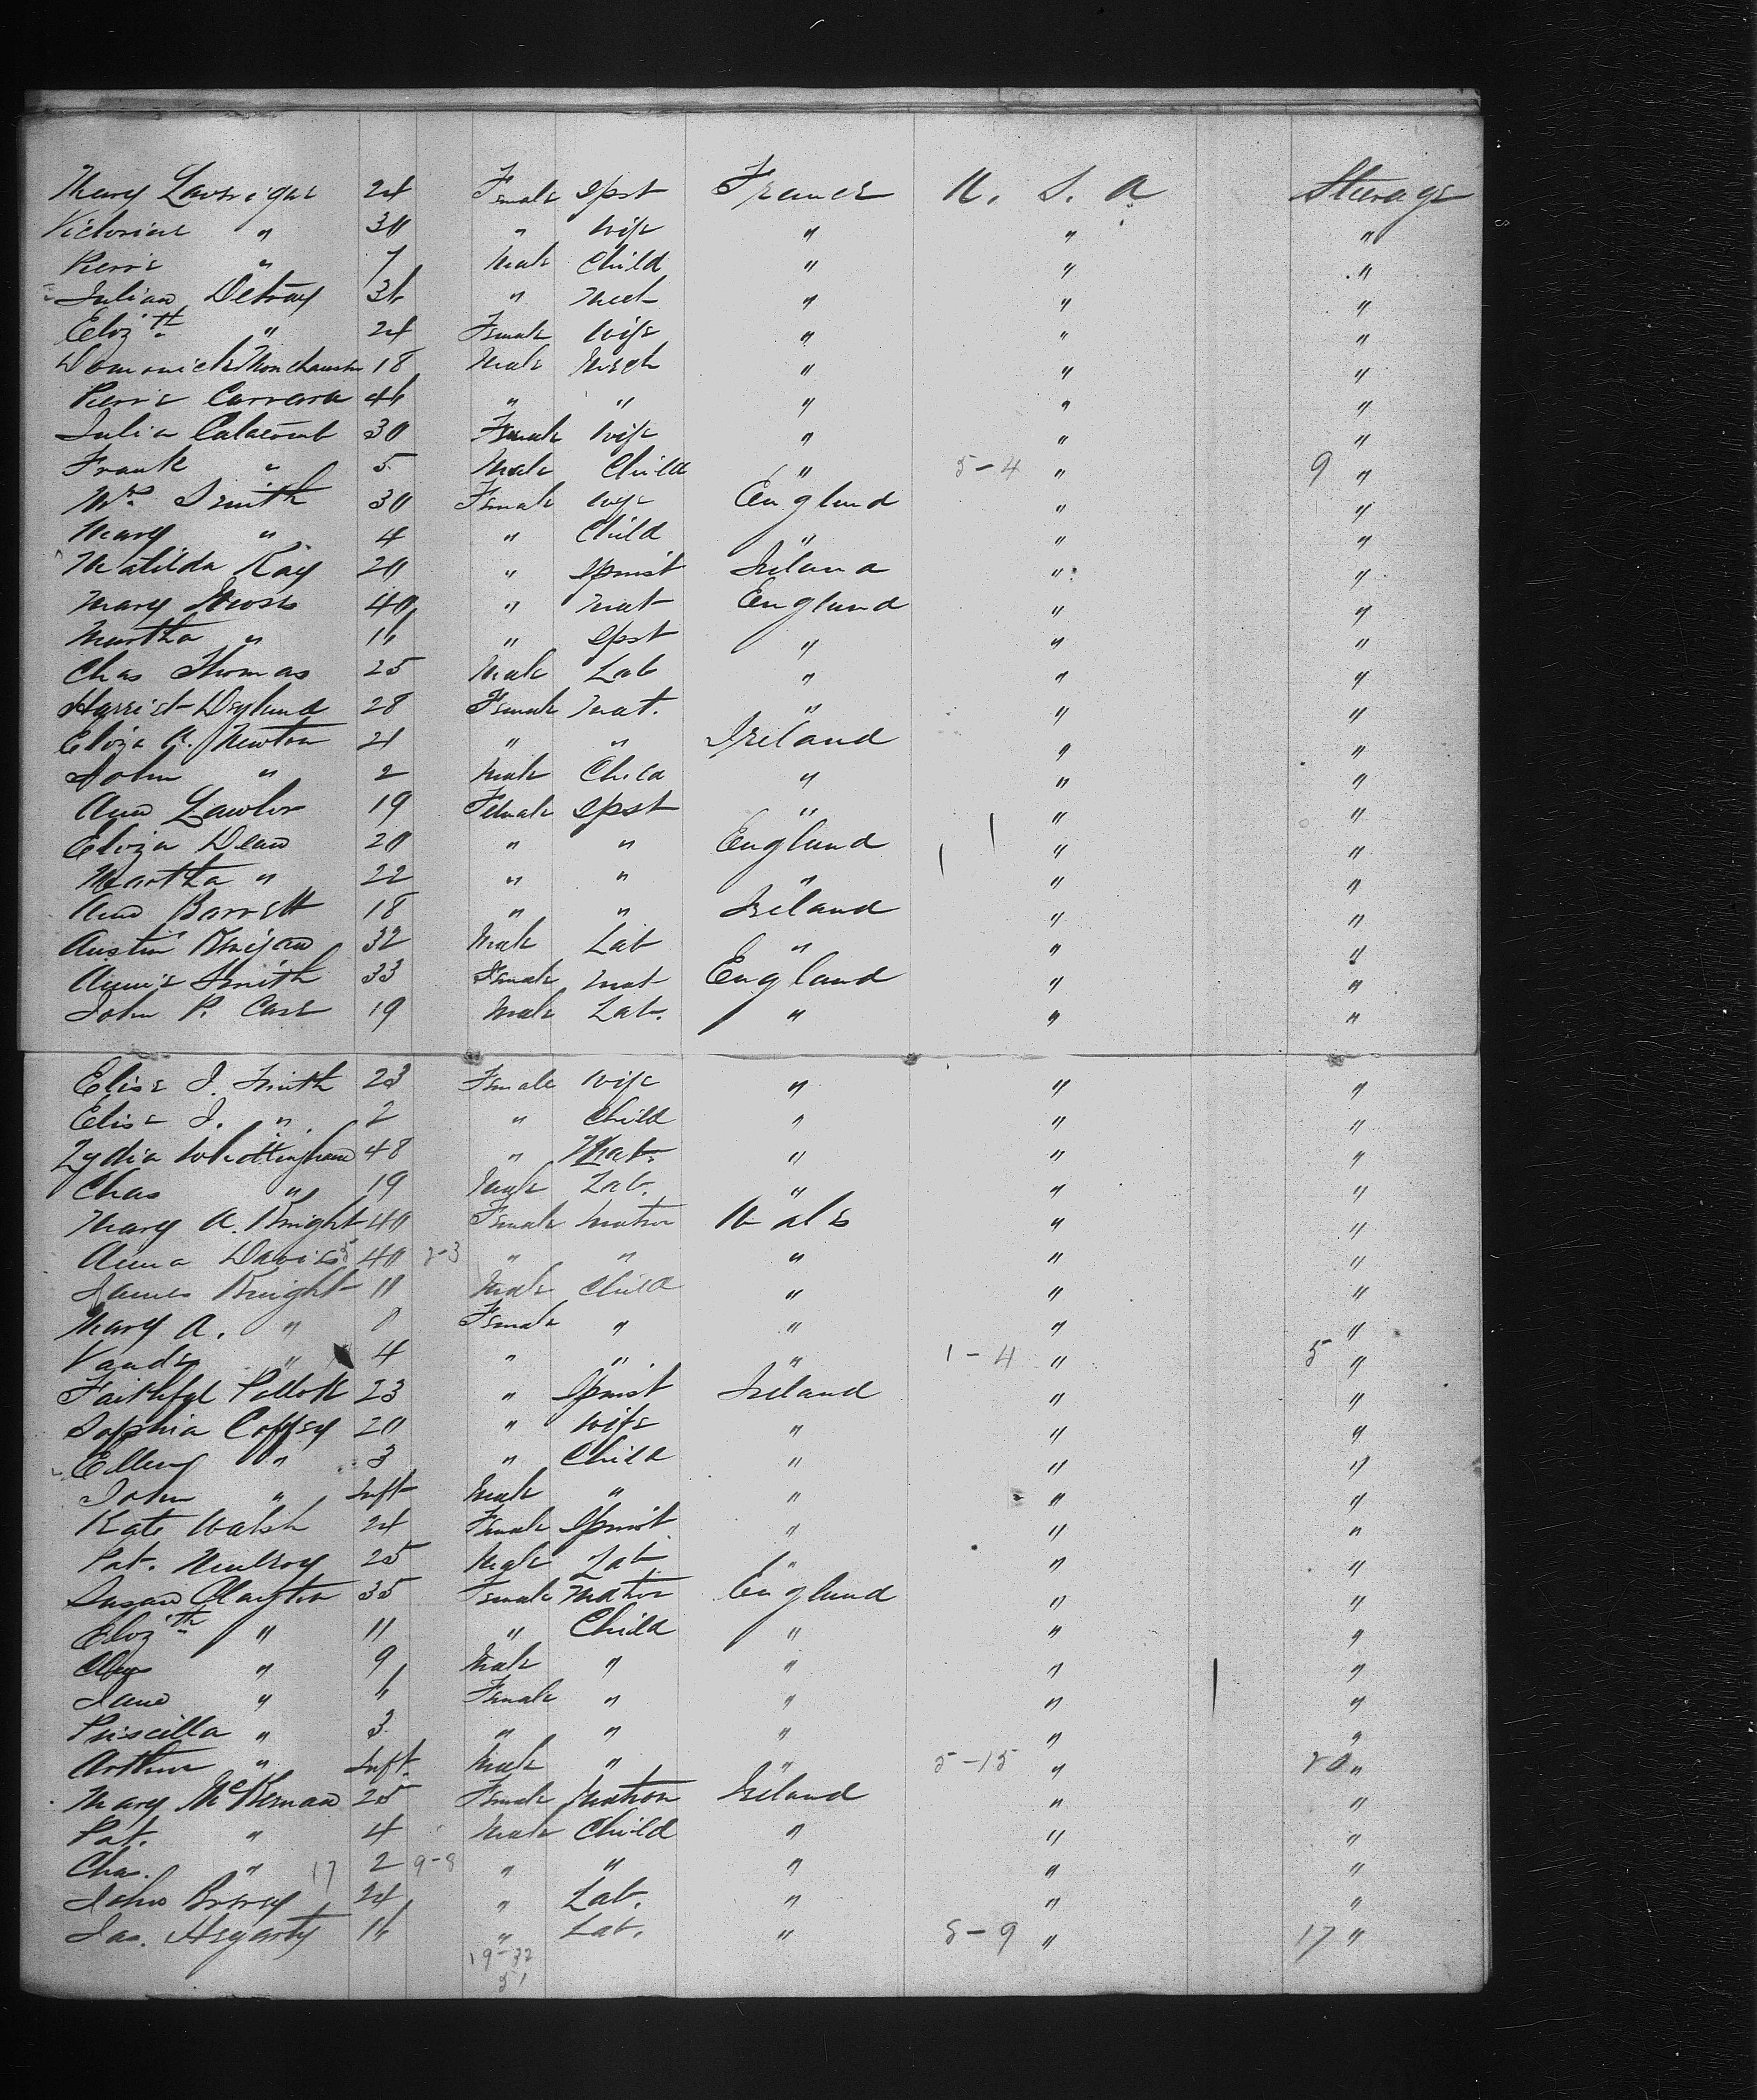 Mary Lavsrique 24 Female Spst France U. S. A Steerage
Victorine " 30 " Wife " " "
Pierre " 7 Male Child " " "
Julian Detray 36 " Mech " " "
Eliz th " 24 Female Wife " " "
Domonick 18 Male Mech " " "
Pierre Carrara 46 " " " " "
Julia Calacomb 30 Female Wife " " "
Frank " 5 Male Child " 5-4 " 9 "
Mrs. Smith 30 Female Wife England " "
Mary " 4 " Child " " "
Matilda Kay 20 " Spinst Ireland " "
Mary 40 " Mat England " "
Martha " 16 " Spst " " "
Chas Thomas 25 Male Lab " " "
Harriet 28 Female Mat. " " "
Eliza A. Newton 21 " " Ireland " "
John " 2 Male Child " " "
Ann Lawlor 19 Female Spst " " "
Eliza Dean 20 " " England " "
Martha " 22 " " " " "
Ann Barrett 18 " " Ireland " "
Austin 32 Male Lab " " "
Annie Smith 33 Female Mat England " "
John P. Case 19 Male Lab. " " "
Elise J. Smith 23 Female Wife " " "
Elise J. " 2 " Child " " "
Lydia Whittingham 48 " Mat. " " "
Chas " 19 Male Lab. " " "
Mary A. Knight 40 Female Matron Wales " "
Anna Davies 5 40 2-3 " " " " "
James Knight 11 Male Child " " "
Mary A. " 8 Female " " " "
" 4 " " " 1-4 " 5 "
Faithful Pollok 23 " Spinst Ireland " "
Sophia Coffey 20 " Wife " " "
Ellen " 3 " Child " " "
John " Inft Male " " " "
Kate Walsh 24 Female Spinst " " "
Pat. Mulroy 25 Male Lab " " "
Susan Clayton 35 Female Matron England " "
Eliz th " 11 " Child " " "
" 9 Male " " " "
Jane " 6 Female " " " "
Priscilla " 3 " " " " "
Arthur " Inft. Male " " 5-15 " 20 "
Mary McKernan 25 Female Matron Ireland " "
Pat. " 4 Male Child " " "
Chas. " 17 2 9-8 " " " " "
John 24 " Lab. " " "
Jas. Hegarty 16 " Lab. " 8-9 " 17 "
19-32
51